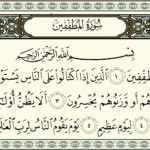 سُورَةُ المُطَفِّفِين
بِسْمِ اللَّهِ الرَّحْمَٰنِ الرَّحِيمِ
لِّلْمُطَفِّفِينَ ١ الَّذِينَ إِذَا اكْتَالُوا عَلَى النَّاسِ يَسْتَوْفُونَ
أَوْ وَزَنُوهُمْ يُخْسِرُونَ ٣ أَلَا يَظُنُّ أُولَٰئِكَ
لِيَوْمٍ عَظِيمٍ ٥ يَوْمَ يَقُومُ النَّاسُ لِرَبِّ